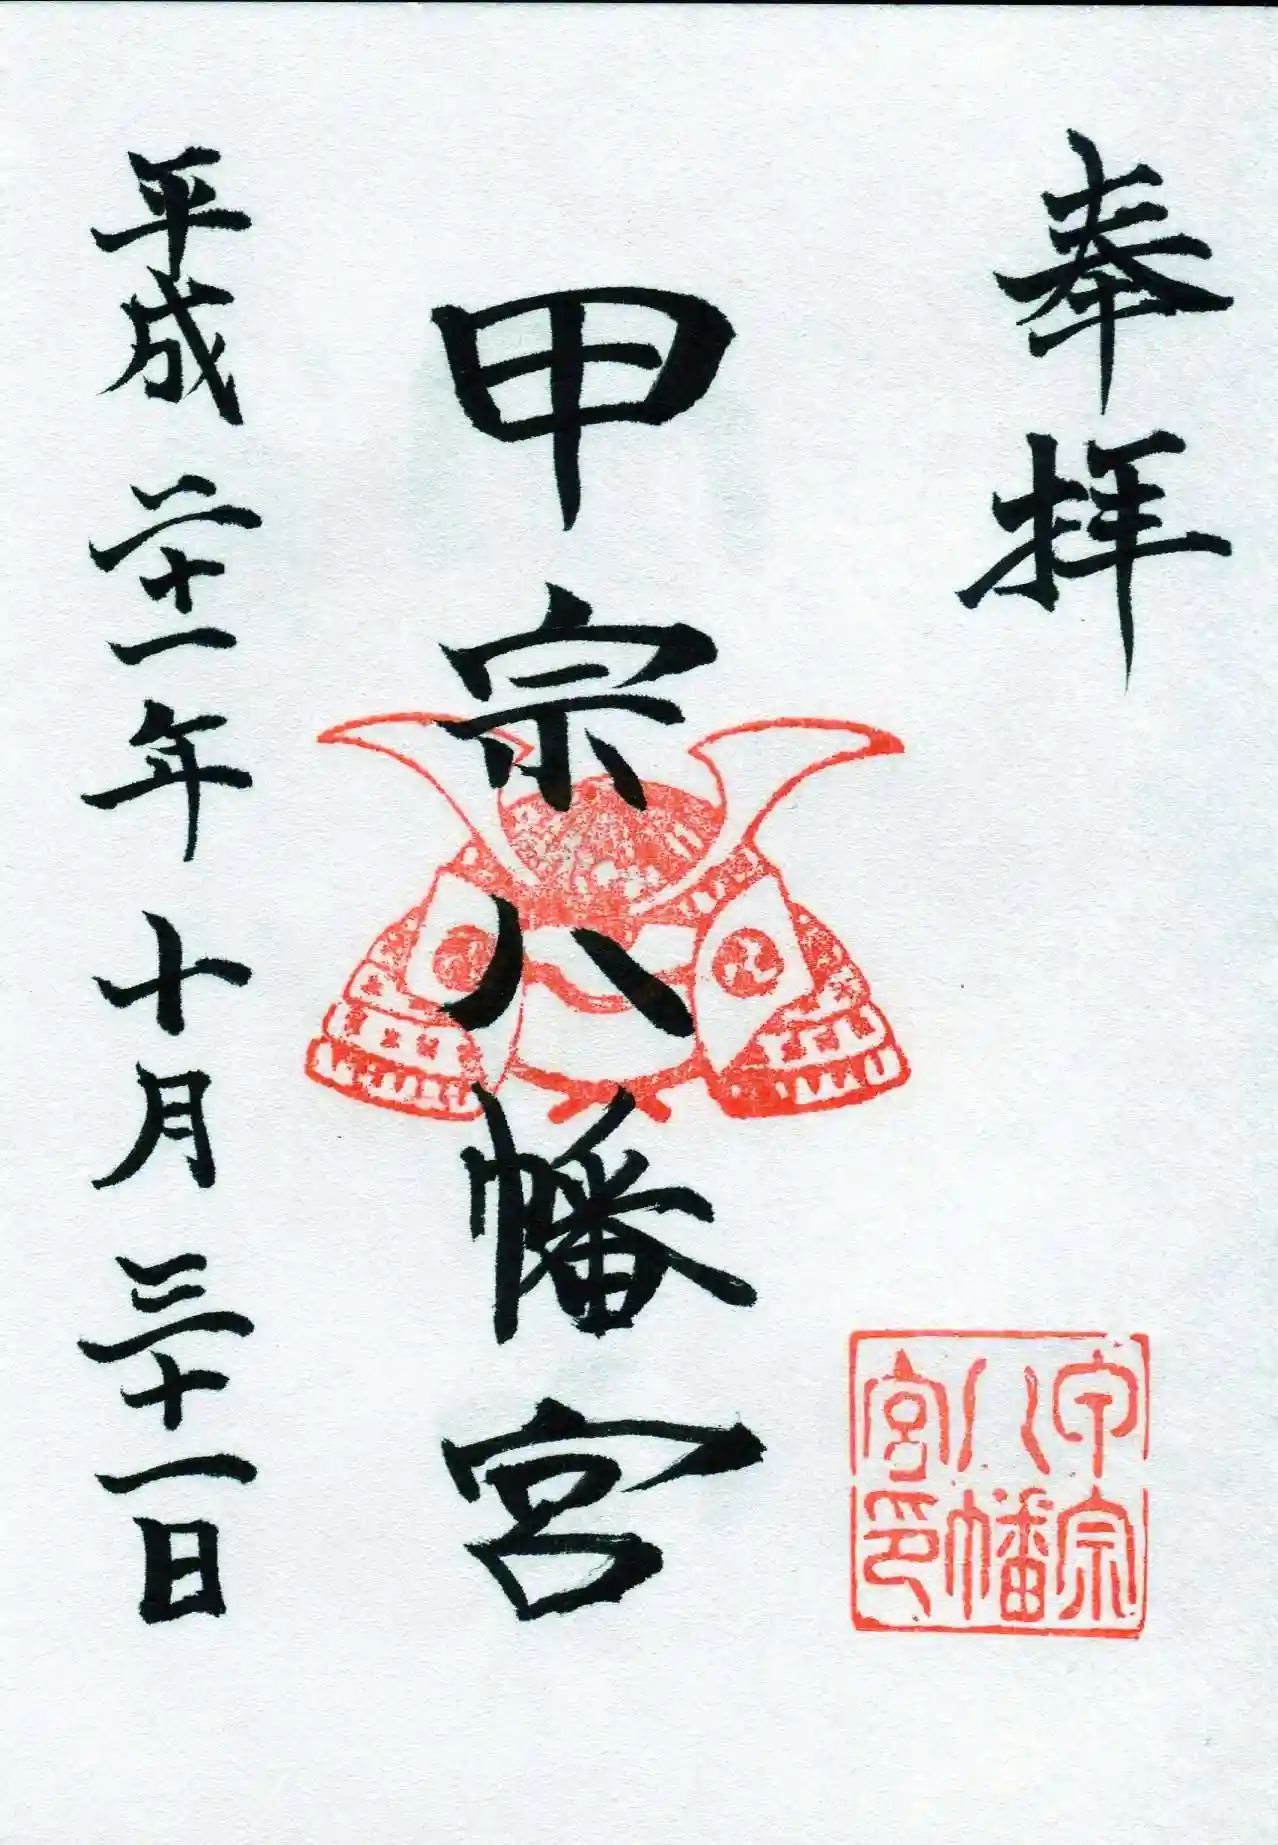 奉拝
甲宗八幡宮
甲宗
八幡
宮印
平成二十一年十月三十一日